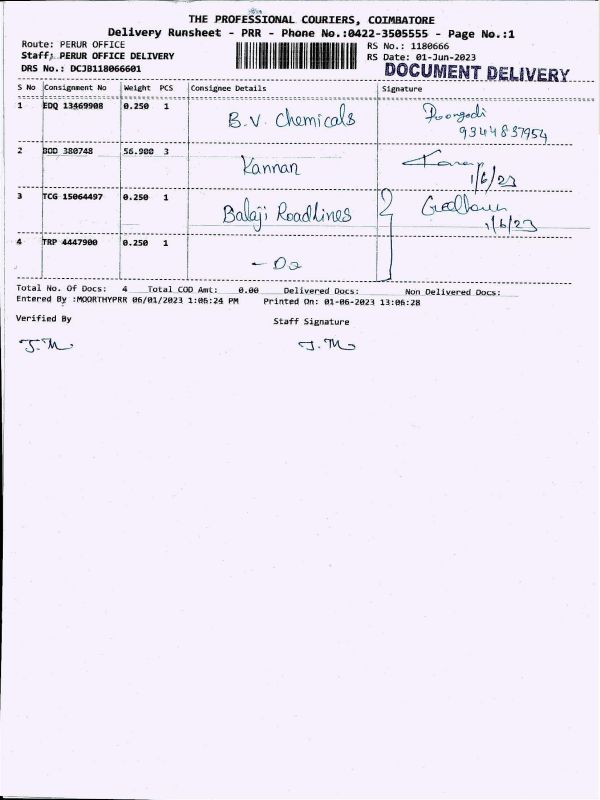 THE PROFESSIONAL COURIERS, COIMBATORE
Delivery Runsheet - PRR - Phone No.:0422-3505555 - Page No.:1
Route: PERUR OFFICE RS No.: 1180666
Staff: PERUR OFFICE DELIVERY RS Date: 01-Jun-2023
DRS No.: DCJB118066601 DOCUMENT DELIVERY
S No Consignment No Weight PCS Consignee Details Signature
1 EDQ 13469908 0.250 1 B.V. Chemicals
9344837954
2 BOD 380748 56.900 3 Kannan
1/6/23
3 TCG 15064497 0.250 1 Balaji Roadlines
1/6/23
4 TRP 4447900 0.250 1 - Do
Total No. Of Docs: 4 Total COD Amt: 0.00 Delivered Docs: Non Delivered Docs:
Entered By :MOORTHYPRR 06/01/2023 1:06:24 PM Printed On: 01-06-2023 13:06:28
Verified By Staff Signature
J.M J.M